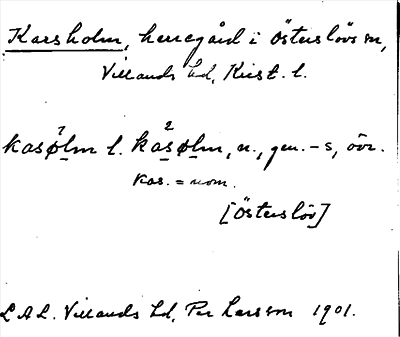 Karsholm, herregård i Österslövs sn,
Villands hd, Krist. l.
kasø̠lm l. kås̠ø̠lm, n., gen. -s, övr.
kas. = nom.
[Österslöv]
L A L. Villands hd, Per Larsson 1901.